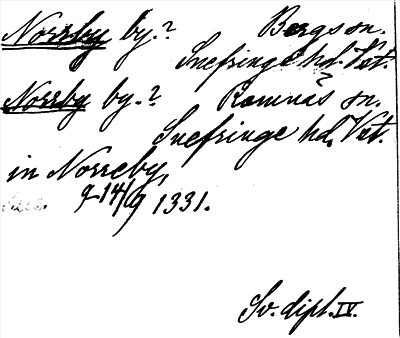 Norrby by.? Bergs sn.
Snefringe hd. Vst.
Norrby by.? Ramnäs sn.
Snefringe hd. Vst.
in Norreby,
14/9 1331.
Sv. dipl. IV.